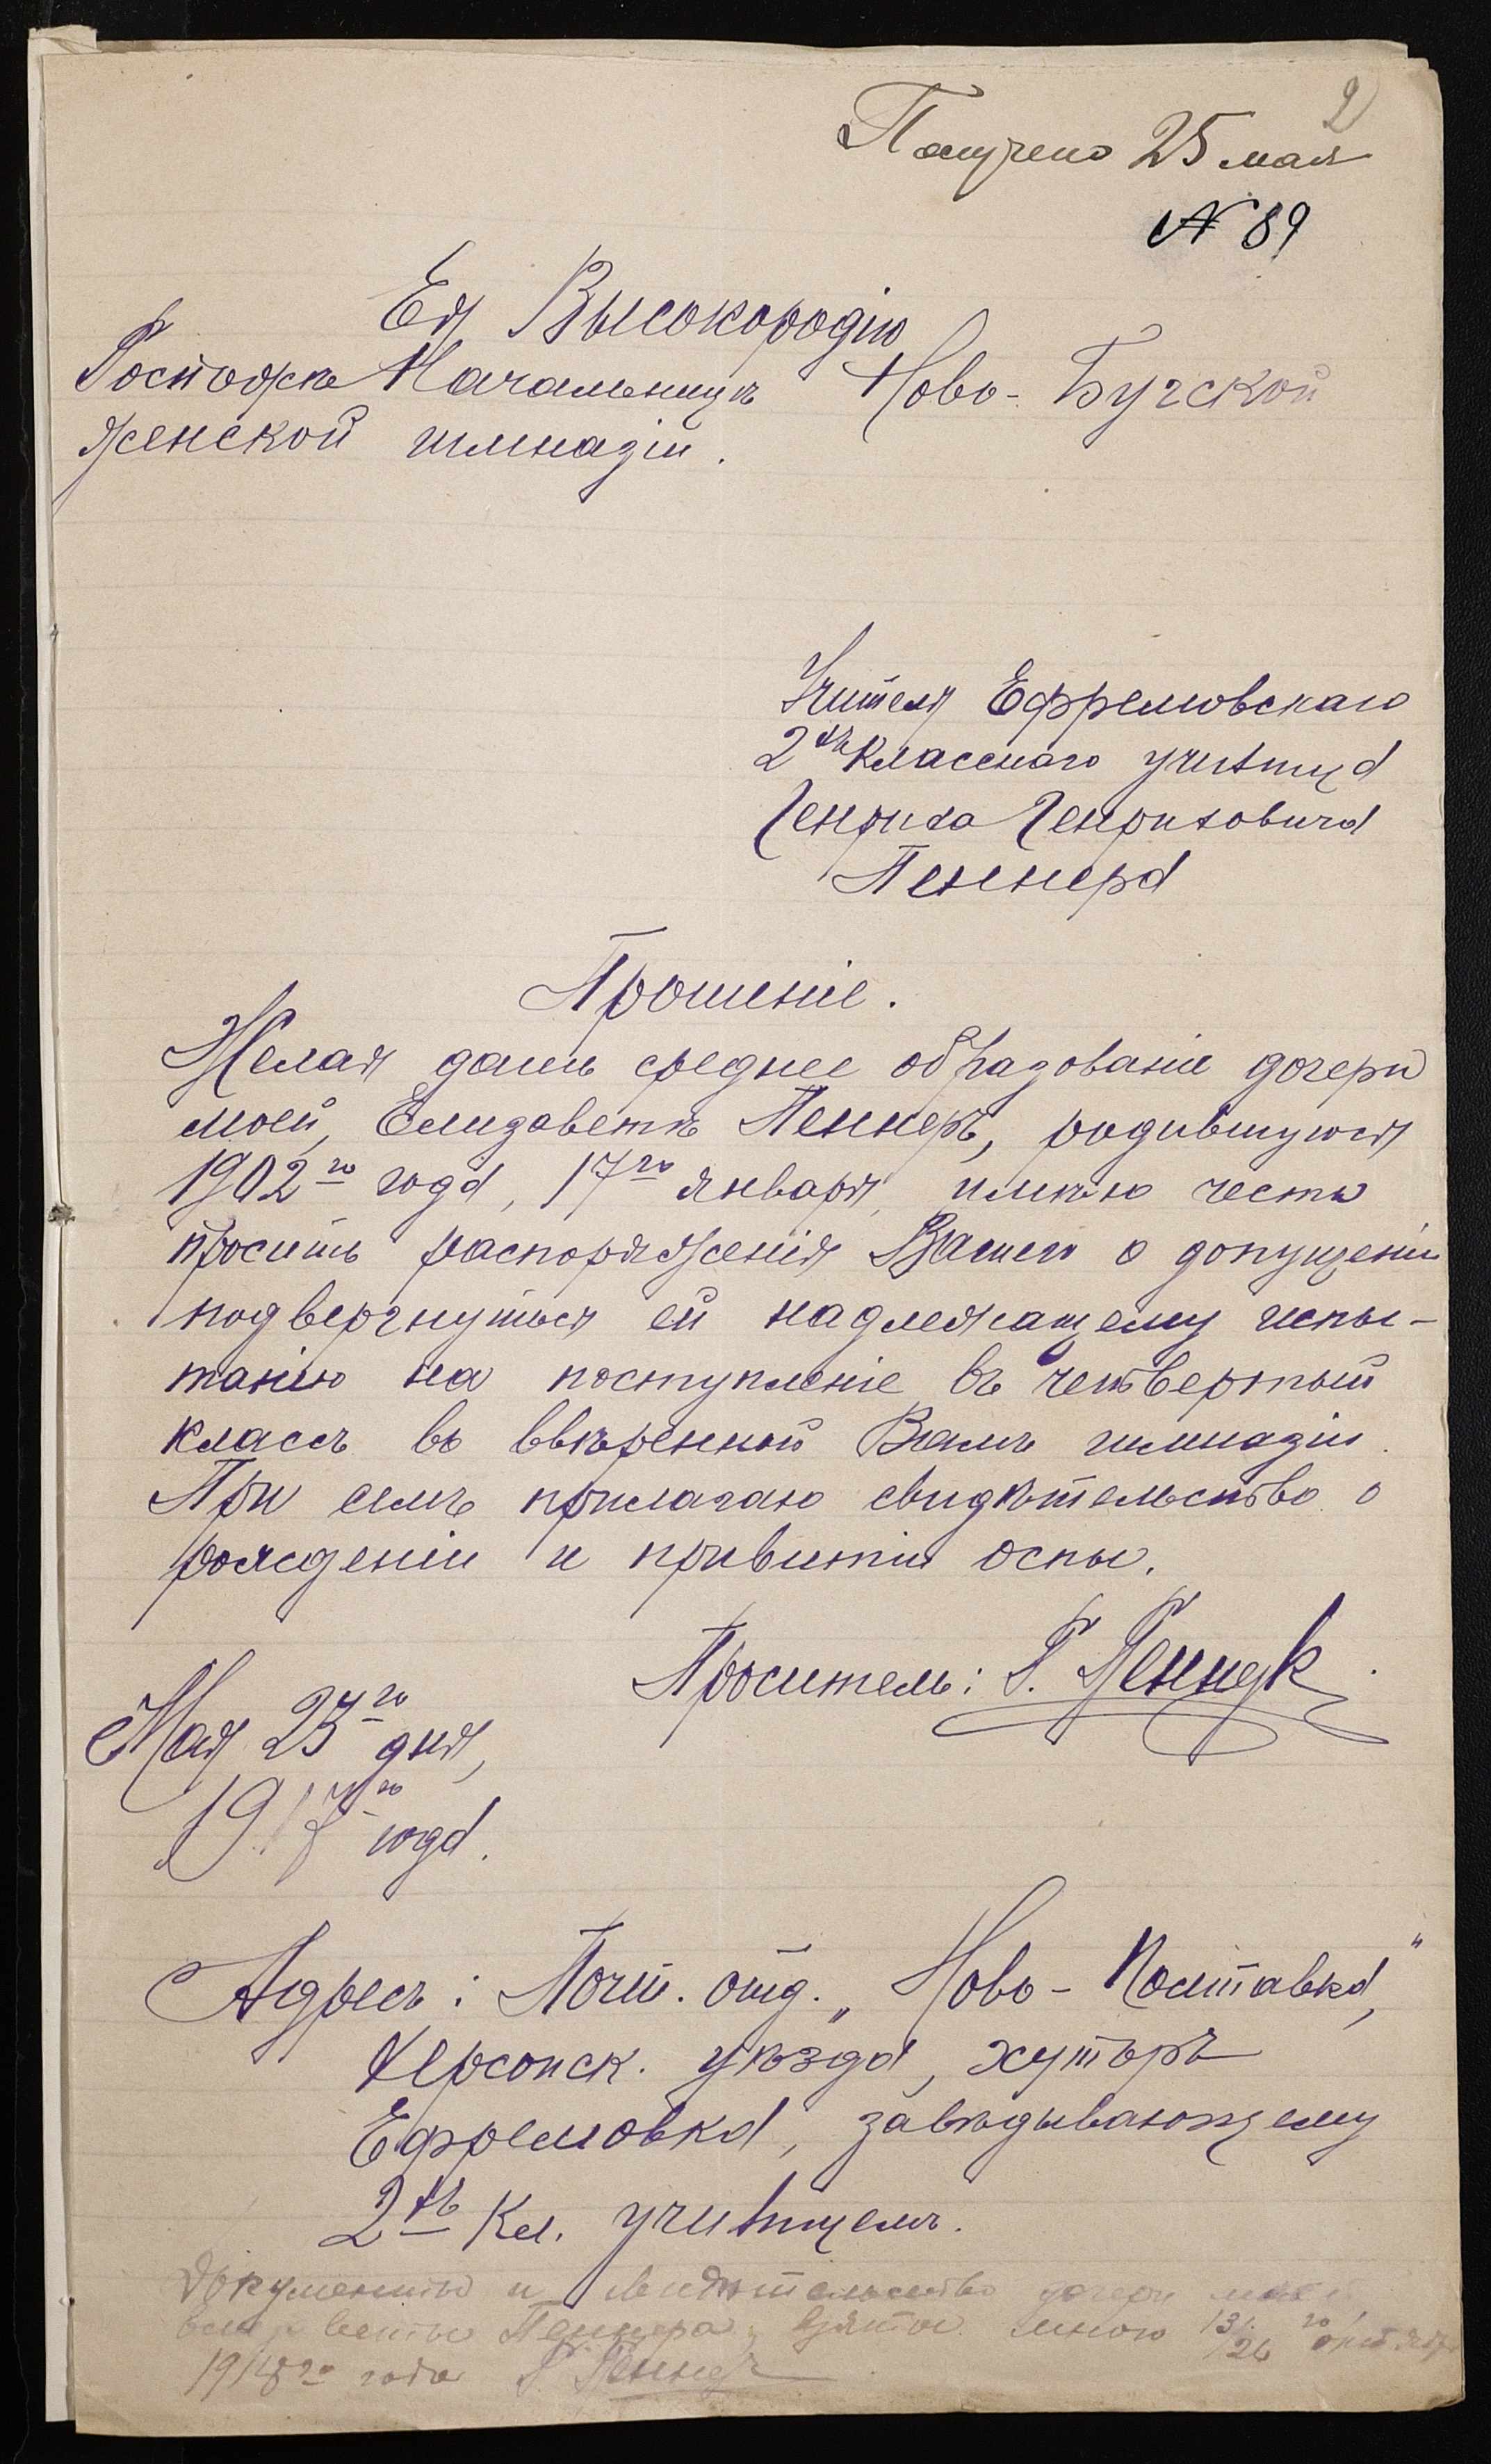 2
Получено 25 мая
№ 89
Ея Высокородію
Госпожѣ Начальницѣ Ново-Бугской
женской гимназіи.
Учителя Ефремовскаго
2хъ класснаго училища
Генриха Генриховича
Пеннера
Прошеніе.
Желая дать среднее образованіе дочери
моей, Елизаветѣ Пеннеръ, родившуюся
1902го года, 17го января, имѣю честь
просить распоряженія Вашего о допущеніи
подвергнуться ей надлежащему испы-
танію на поступленіе въ четвертый
классъ во ввѣренной Вамъ гимназіи.
При семъ прилагаю свидѣтельство о
рожденіи и привитіи оспы.
Проситель: Г. Пеннеръ
Мая 23го дня,
1917го года.
Адресъ: Почт. отд. „Ново-Полтавка",
Херсонск. уѣзда, хуторъ
Ефремовка, завѣдывающему
2хъ Кл. училищемъ.
Документы и свидѣтельство дочери моей
Пеннера взяты мною 13/26го октября
1918го года Г. Пеннеръ